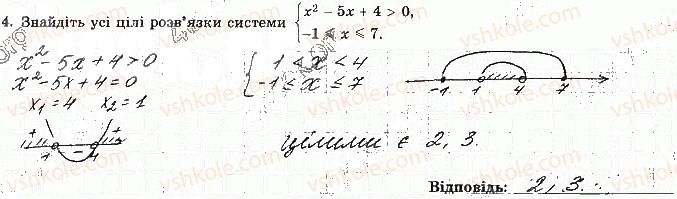 4. Знайдіть усі цілі розв'язки системи { x² − 5x + 4 > 0,
−1 ⩽ x ⩽ 7.
x² − 5x + 4 > 0
x² − 5x + 4 = 0
x₁ = 4 x₂ = 1
+ − − +
1 4
{ 1 < x < 4
−1 ≤ x ≤ 7
−1 1 4 7
цілими є 2, 3.
Відповідь: 2, 3.
vshkole.com